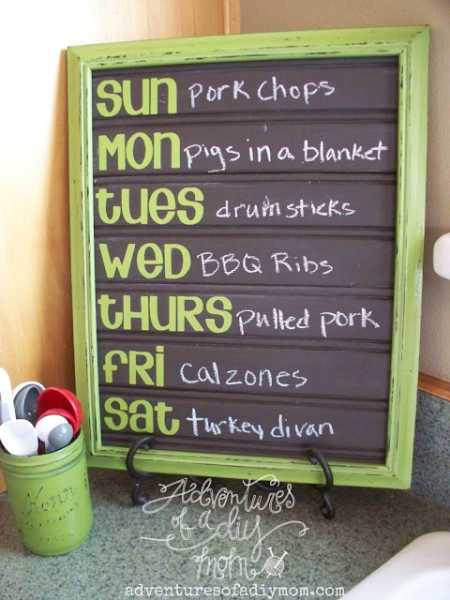 Sun Pork Chops
Mon pigs in a blanket
Tues drumsticks
Wed BBQ Ribs
Thurs Pulled pork
Fri Calzones
Sat turkey divan
Kerr
Adventures
of a diy
mom
adventuresofadiymom.com